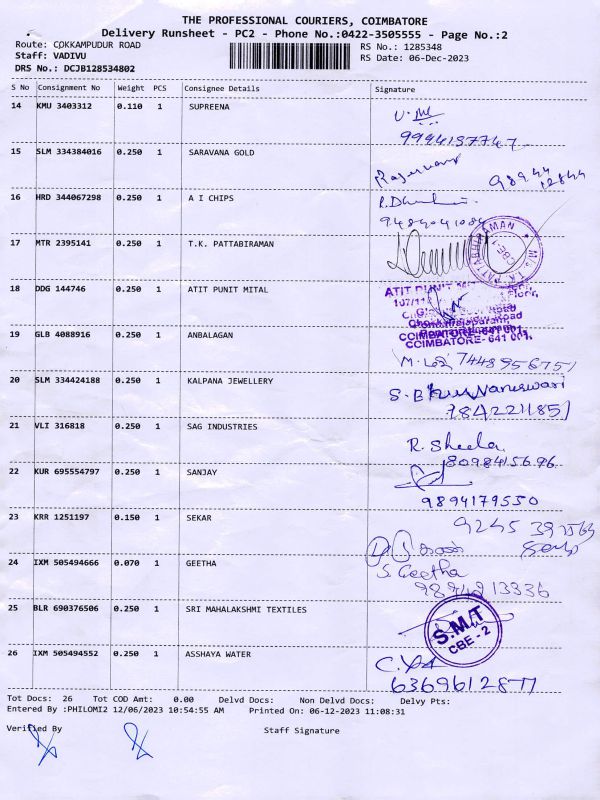 THE PROFESSIONAL COURIERS, COIMBATORE
Delivery Runsheet - PC2 - Phone No.:0422-3505555 - Page No.:2
Route: COKKAMPUDUR ROAD RS No.: 1285348
Staff: VADIVU RS Date: 06-Dec-2023
DRS No.: DCJB128534802
S No Consignment No Weight PCS Consignee Details Signature
14 KMU 3403312 0.110 1 SUPREENA
9994137747
15 SLM 334384016 0.250 1 SARAVANA GOLD
98944
12844
16 HRD 344067298 0.250 1 A I CHIPS
9489041084
17 MTR 2395141 0.250 1 T.K. PATTABIRAMAN
M/s. T.K. PATTABHIRAMAN
CBE-1
18 DDG 144746 0.250 1 ATIT PUNIT MITAL
ATIT PUNIT
COIMBATORE - 641 001.
19 GLB 4088916 0.250 1 ANBALAGAN
7448956751
20 SLM 334424188 0.250 1 KALPANA JEWELLERY
S. Bhuvaneswari
7842211851
21 VLI 316818 0.250 1 SAG INDUSTRIES
R. Sheela
8098415696
22 KUR 695554797 0.250 1 SANJAY
9894179550
23 KRR 1251197 0.150 1 SEKAR
9245
24 IXM 505494666 0.070 1 GEETHA
S. Geetha
9894213336
25 BLR 690376506 0.250 1 SRI MAHALAKSHMI TEXTILES
S.M.T
CBE - 2
26 IXM 505494552 0.250 1 ASSHAYA WATER
6369612877
Tot Docs: 26 Tot COD Amt: 0.00 Delvd Docs: Non Delvd Docs: Delvy Pts:
Entered By :PHILOMI2 12/06/2023 10:54:55 AM Printed On: 06-12-2023 11:08:31
Verified By Staff Signature